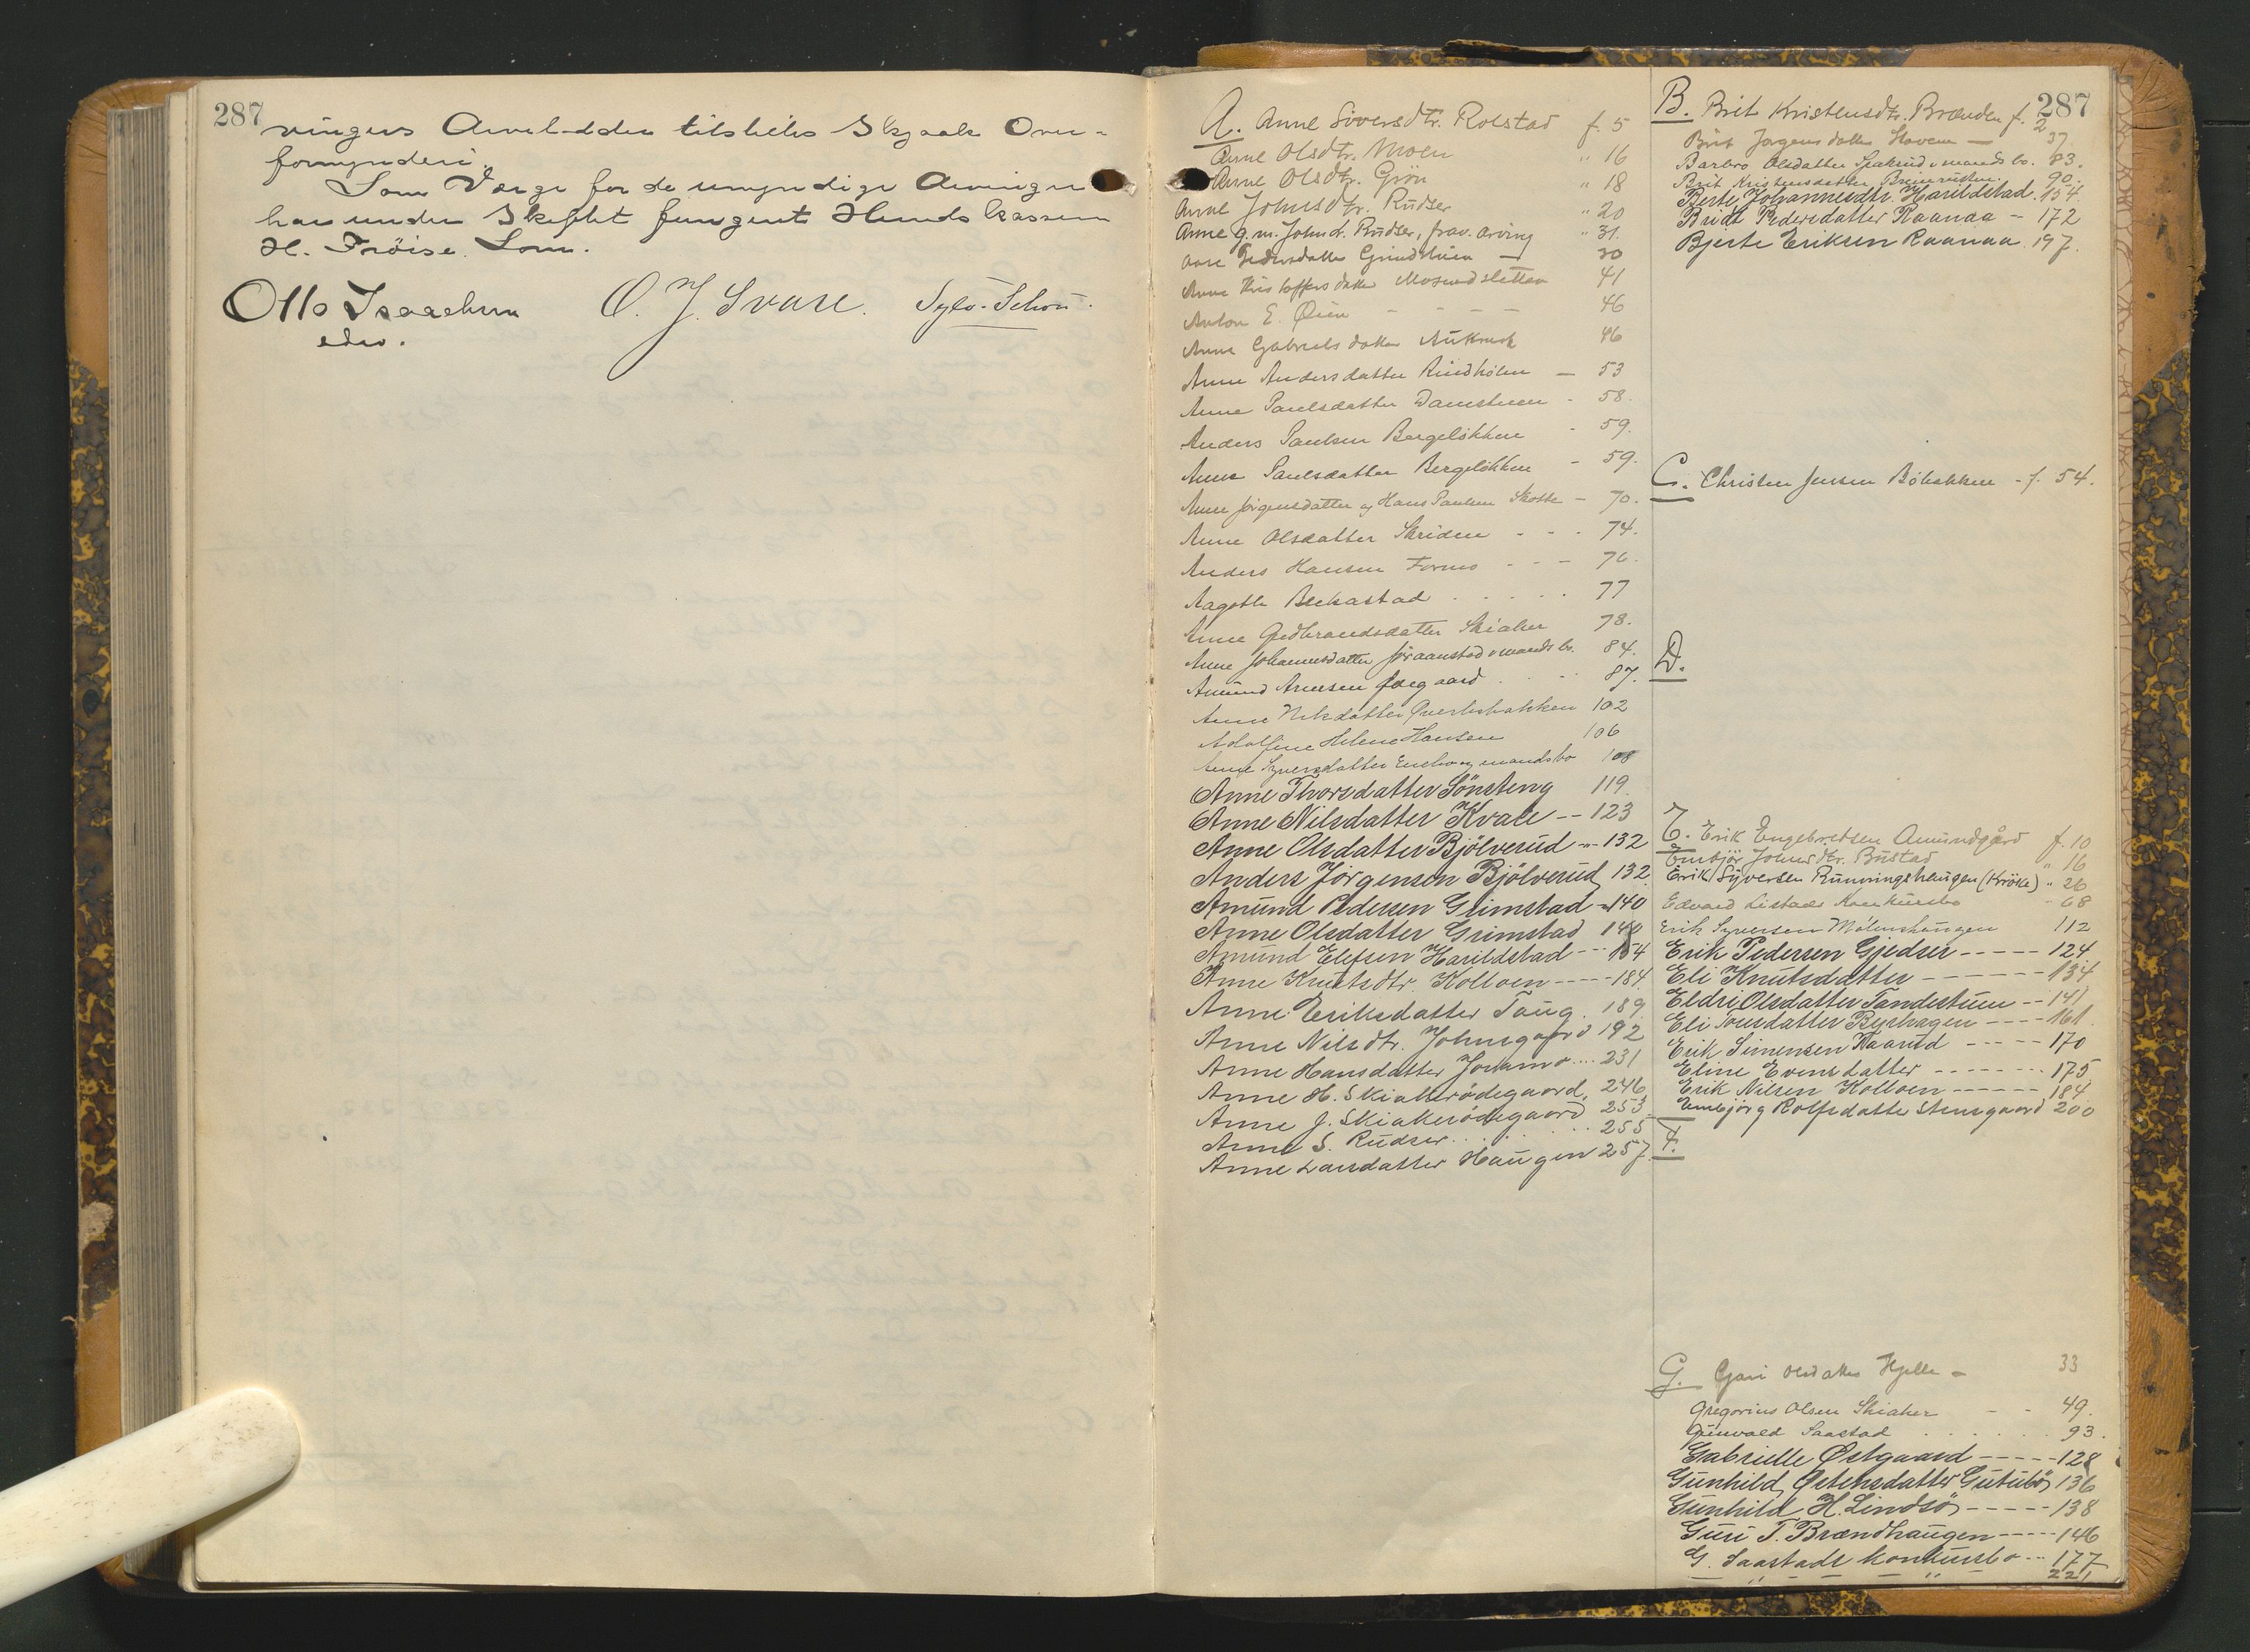 287
vingers Arvelodder tilstilles Skjaak Over-
formynderi.
Som Værge for de umyndige Arvinger
har under Skiftet fungeret Hundskassem
H. Fröise. Lom.
Otto Isaachsen O. J. Svare. Sylv. Schou.
edsv.
A. Anne Siversdtr. Rolstad f. 5
Anne Olsdtr. Moen " 16
Anne Olsdtr. Grön " 18
Anne Johnsdtr. Rudser " 20
Anne g.m. John d. Rudser, frav. arving " 31.
Aase Pedersdatter Grindstuen — 30
Anne Kristoffersdatter Mosundsletten 41
Anton E. Øien - - - - 46
Anne Gabrielsdatter Aukrust 46
Anne Andersdatter Rindhölen — 53
Anne Paulsdatter Damstuen - 58.
Anders Paulsen Bergelökken - 59.
Anne Paulsdatter Bergelökken - 59.
Anne Jörgensdatter og Hans Paulsen Skotte - 70.
Anne Olsdatter Skriden - - - 74.
Anders Hansen Formo - - - 76.
Aagoth Brekastad . . . . . 77
Anne Gudbrandsdatter Skiaker 78.
Anne Johannesdatter Jöraanstad o mands bo. 84.
Amund Arnesen . . . 87.
Anne Nilsdatter Qverlesbakken 102
Adolfine Helene Hansen 106
Anne Syversdatter Enebo og mandsbo 108
Anne Thorsdatter Sönsteng 119.
Anne Nilsdatter Kvale -- 123
Anne Olsdatter Bjölverud --- 132
Anders Jörgensen Bjölverud 132
Amund Pedersen Grimstad - 140
Anne Olsdatter Grimstad 140
Amund Elefsen Harildstad - - - 154
Anne Knutsdtr. Kolloen ---- 184.
Anne Eriksdatter Taug. 189
Anne Nilsdtr. Johnsgard 192
Anne Hansdatter Joramo .... 231
Anne H. Skiakerödegaard. 246
Anne J. Skiakerödegaard 253
Anne S. Rudser . . . . . . . 255
Anne Larsdatter Haugen 257.
287
B. Brit Kristensdtr. Brænden f. 2
Brit Jörgensdatter Hoven — 37
Barbro Olsdatter o mands bo. 83.
Brit Kristensdatter 90.
Berte Johannesdtr. Harildstad. 154.
Bridt Pedersdatter Raanaa - 172
Bjerte Eriksen Raanaa. 197.
C. Christen Jensen Böbakken - f. 54.
D.
E. Erik Engebretsen Amundgård f. 10
Embjör Johnsdtr. Bustad " 16
Erik Syversen Runningshaugen (Kröke) " 26
Edvard Listads Konkursbo " 68
Erik Syversen Mölmshaugen 112
Erik Pedersen Gjedser ----- 124
Eli Knutsdatter ------ 134
Eldri Olsdatter Tandestuen -- 141
Eli Torsdatter Byrhagen ---- 161.
Erik Simensen Kaarud ----- 170
Eline Evensdatter -------- 175
Erik Nilsen Kolloen ------ 184
Embjörg Rolfsdatter Stensgaard 200
F.
G. Gjari Olsdatter Hjelle - 33
Gregorius Olsen Skiaker - - 49.
Gunvald Saastad . . . . . . 93.
Gabrielle Østgaard ----- 128
Gunhild Östensdatter Gutubö, 136
Gunhild H. Lindsö, ----- 138
Guri T. Brændhaugen ----- 146
G. Saastads konkursbo --- 177
— " — — " — 221